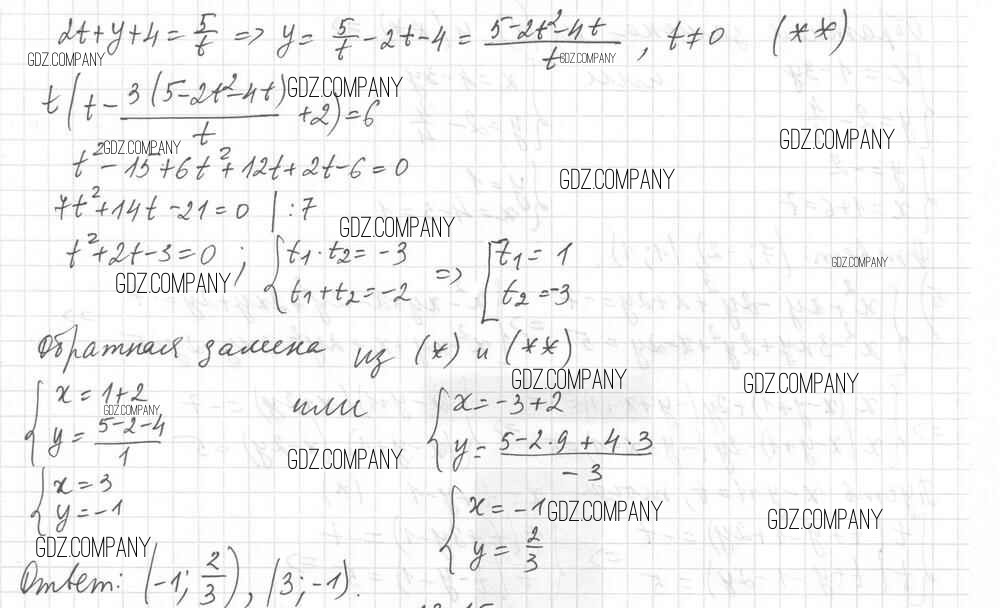 2t+y+4 = 5/t => y = 5/t - 2t - 4 = (5-2t²-4t)/t, t≠0 (**)
GDZ.COMPANY GDZ.COMPANY
t(t - 3(5-2t²-4t)/t + 2) = 6
GDZ.COMPANY
GDZ.COMPANY
GDZ.COMPANY
t² - 15 + 6t² + 12t + 2t - 6 = 0
GDZ.COMPANY
7t² + 14t - 21 = 0 | :7
GDZ.COMPANY
t² + 2t - 3 = 0 ; { t₁·t₂ = -3 => [ t₁ = 1
GDZ.COMPANY
GDZ.COMPANY
{ t₁+t₂ = -2 [ t₂ = -3
Обратная замена из (*) и (**)
GDZ.COMPANY GDZ.COMPANY
{ x = 1+2 или { x = -3+2
GDZ.COMPANY
{ y = (5-2-4)/1 { y = (5-2·9+4·3)/-3
GDZ.COMPANY
{ x = 3 { x = -1
GDZ.COMPANY GDZ.COMPANY
{ y = -1 { y = 2/3
GDZ.COMPANY
Ответ: (-1; 2/3), (3; -1).